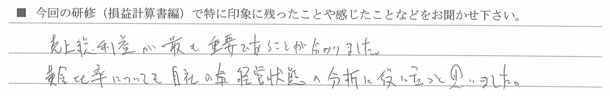 ■ 今回の研修（損益計算書編）で特に印象に残ったことや感じたことなどをお聞かせ下さい。
売上総利益が最も重要であることが分かりました。
比率についても自社の経営状態の分析に役に立つと思いました。